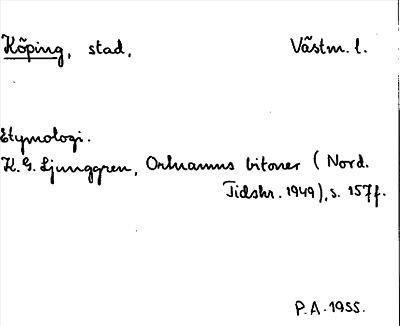 Köping, stad, Västm. l.
Etymologi.
K. G. Ljunggren, Ortnamns bitoner (Nord.
Tidskr. 1949), s. 157 f.
P. A. 1955.